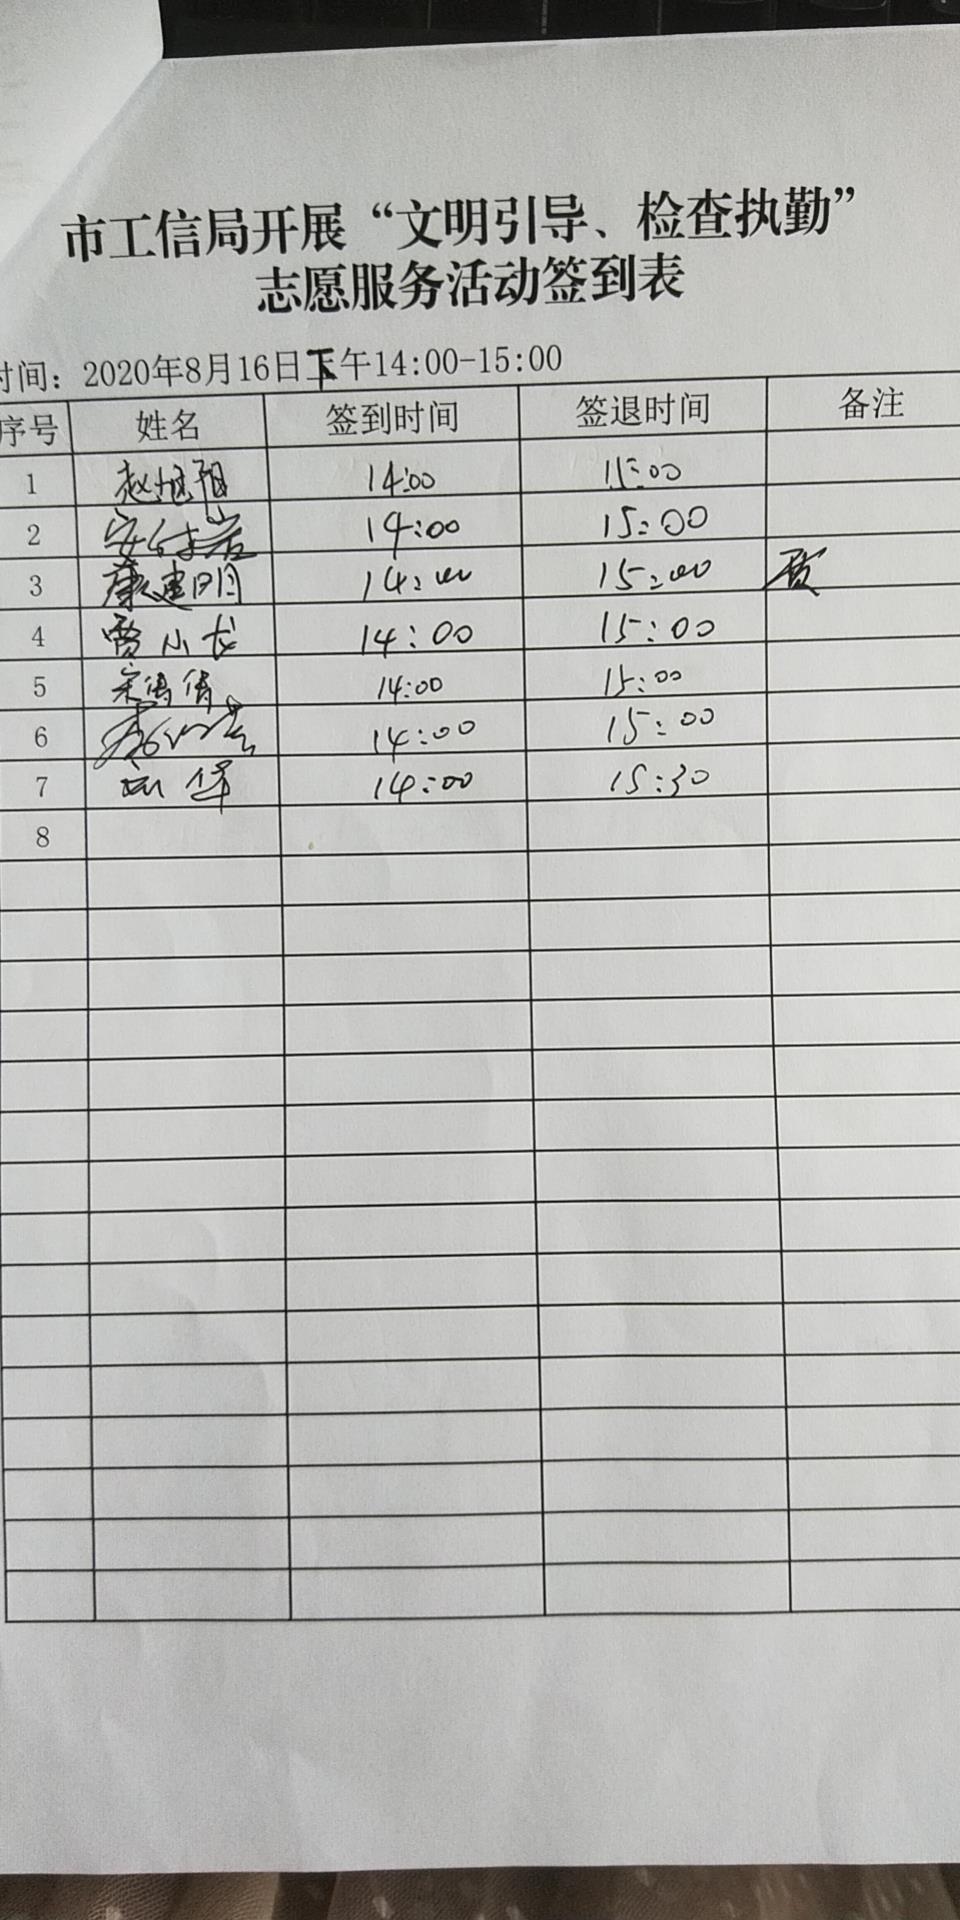 市工信局开展“文明引导、检查执勤”
志愿服务活动签到表
时间：2020年8月16日下午14:00-15:00
序号 姓名 签到时间 签退时间 备注
1 赵旭阳 14:00 15:00
2 14:00 15:00
3 康建明 14:00 15:00
4 贾小龙 14:00 15:00
5 宋倩倩 14:00 15:00
6 14:00 15:00
7 14:00 15:30
8